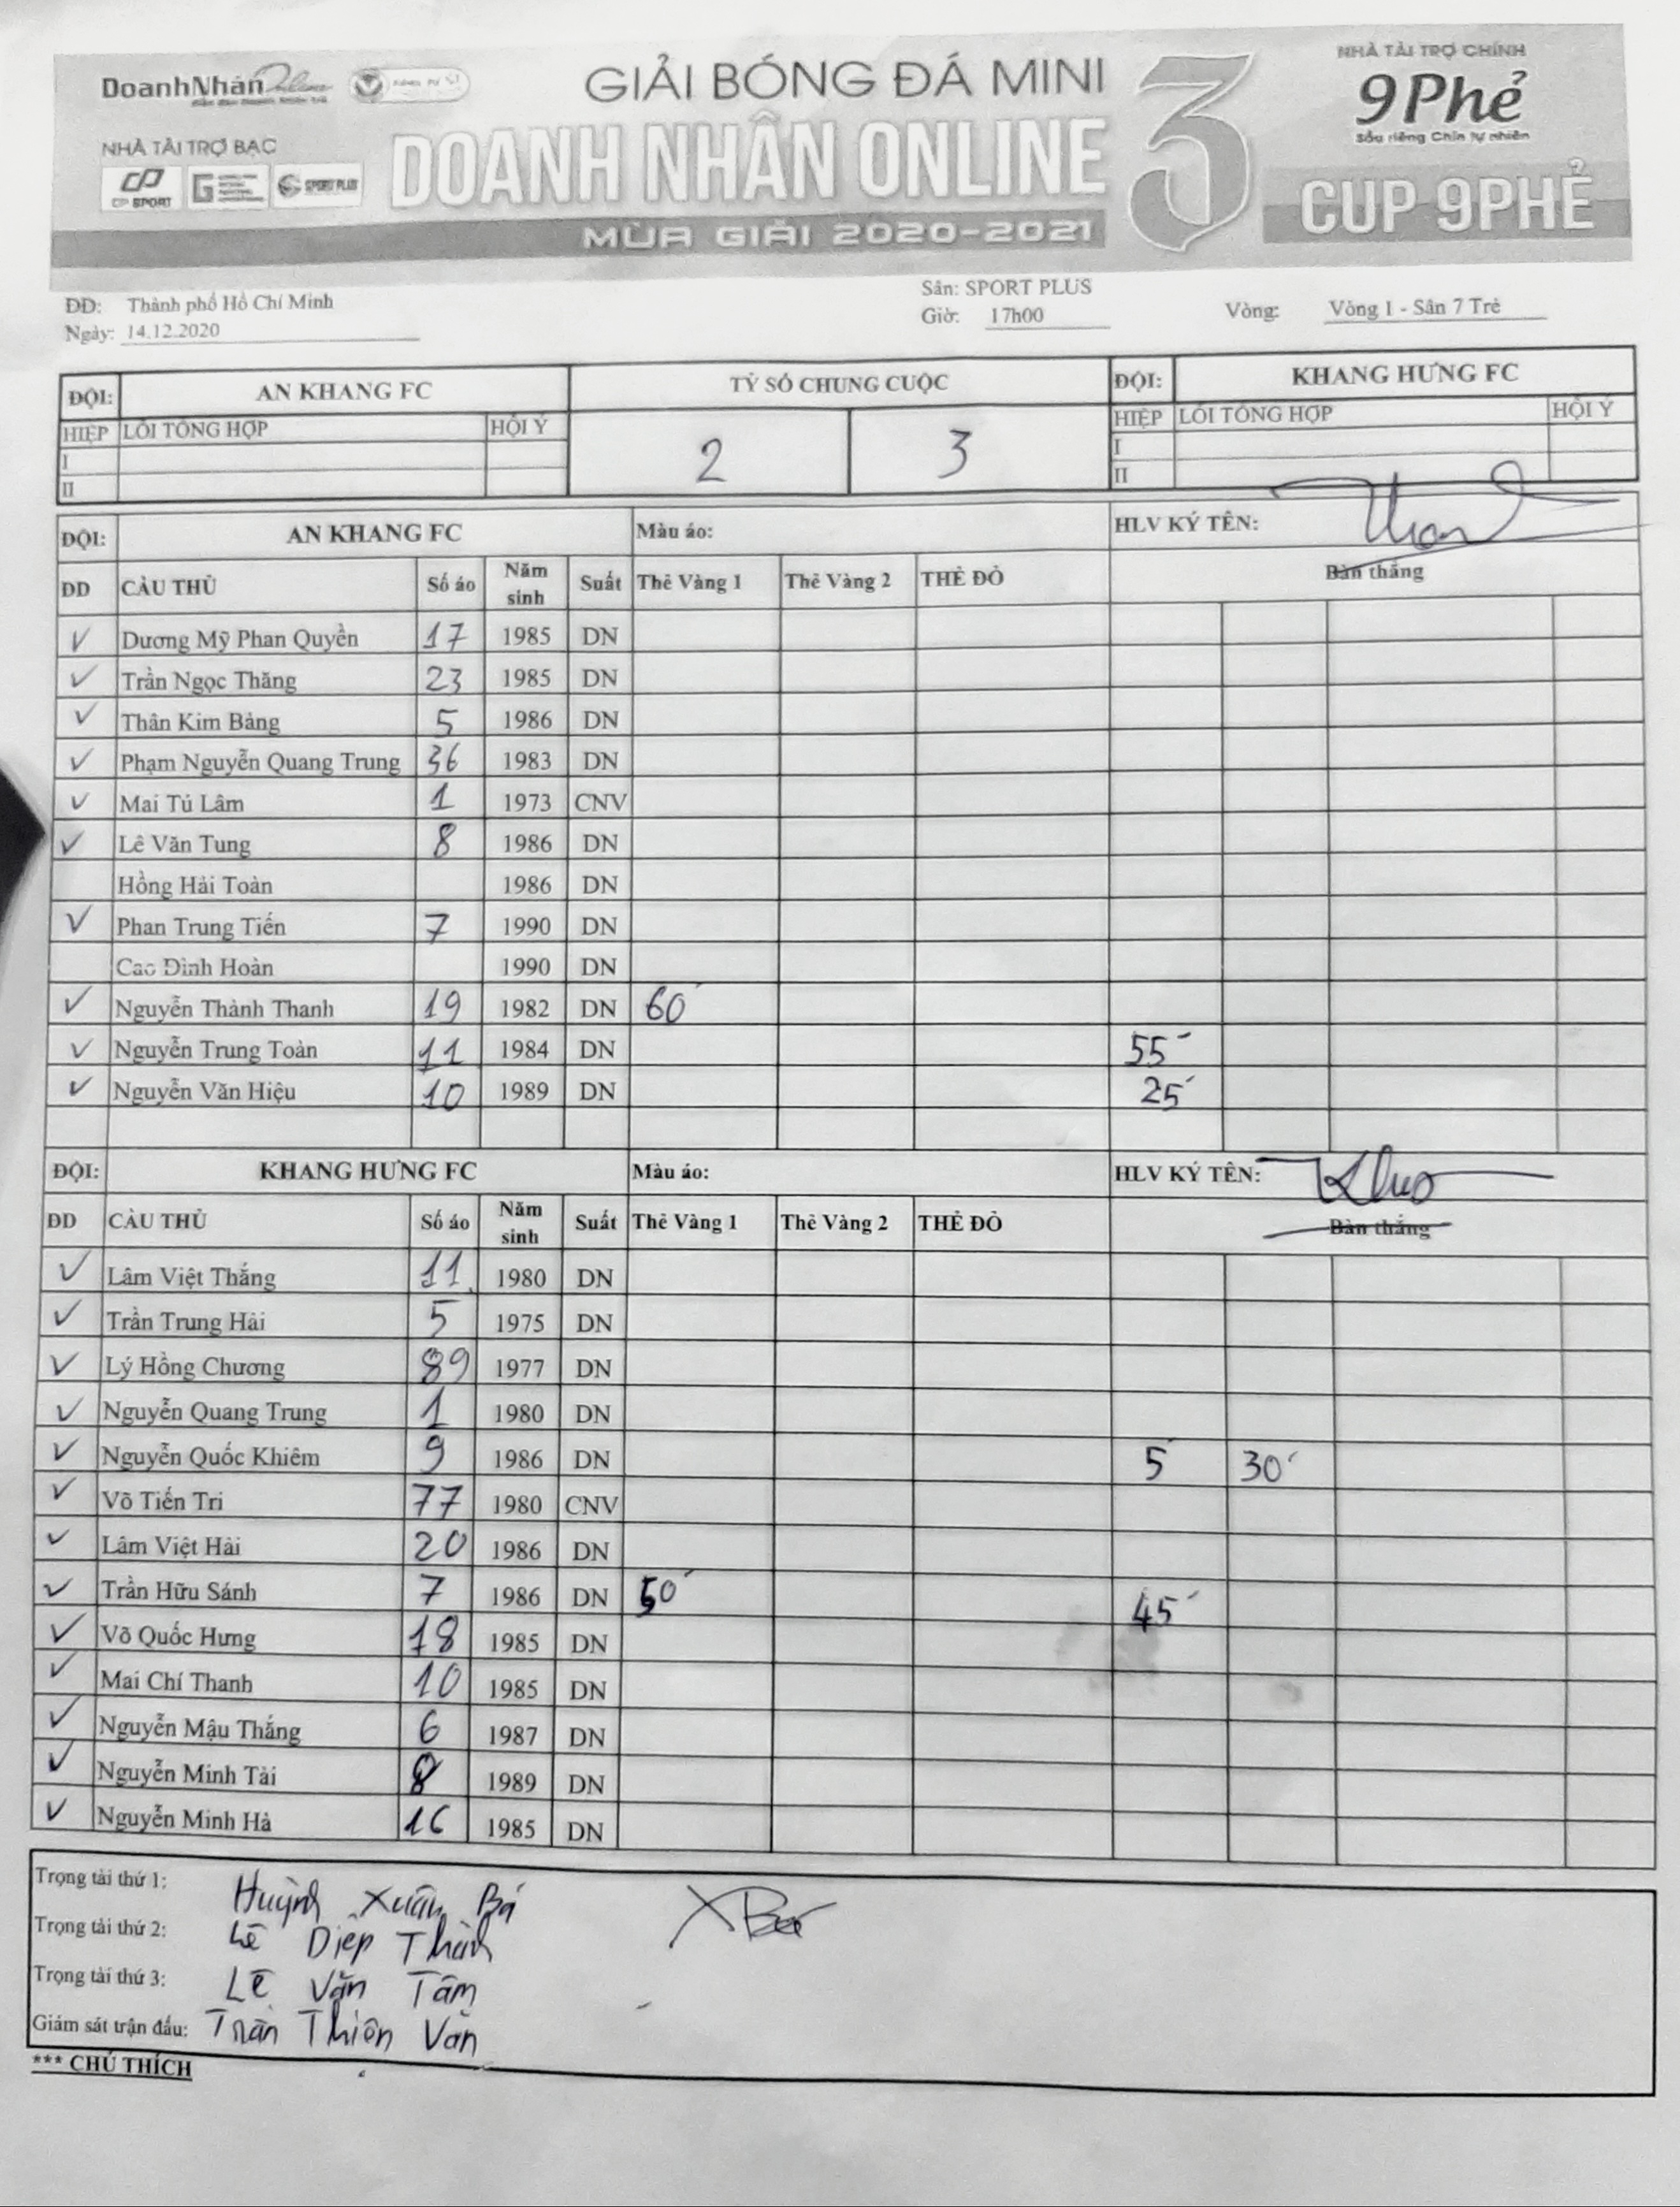 DoanhNhân Online
GIẢI BÓNG ĐÁ MINI
NHÀ TÀI TRỢ CHÍNH
9Phẻ
Sầu riêng Chín tự nhiên
NHÀ TÀI TRỢ BẠC
CP SPORT
SPORT PLUS
DOANH NHÂN ONLINE 3
CUP 9PHẺ
MÙA GIẢI 2020-2021
ĐD: Thành phố Hồ Chí Minh
Sân: SPORT PLUS
Ngày: 14.12.2020
Giờ: 17h00
Vòng: Vòng 1 - Sân 7 Trẻ
ĐỘI: AN KHANG FC TỶ SỐ CHUNG CUỘC ĐỘI: KHANG HƯNG FC
HIỆP LỖI TỔNG HỢP HỘI Ý 2 3 HIỆP LỖI TỔNG HỢP HỘI Ý
I I
II II
ĐỘI: AN KHANG FC Màu áo: HLV KÝ TÊN:
DD CẦU THỦ Số áo Năm sinh Suất Thẻ Vàng 1 Thẻ Vàng 2 THẺ ĐỎ Bàn thắng
✓ Dương Mỹ Phan Quyền 17 1985 DN
✓ Trần Ngọc Thăng 23 1985 DN
✓ Thân Kim Bảng 5 1986 DN
✓ Phạm Nguyễn Quang Trung 36 1983 DN
✓ Mai Tú Lâm 1 1973 CNV
✓ Lê Văn Tung 8 1986 DN
Hồng Hải Toàn 1986 DN
✓ Phan Trung Tiến 7 1990 DN
Cao Đình Hoàn 1990 DN
✓ Nguyễn Thành Thanh 19 1982 DN 60'
✓ Nguyễn Trung Toàn 11 1984 DN 55'
✓ Nguyễn Văn Hiệu 10 1989 DN 25'
ĐỘI: KHANG HƯNG FC Màu áo: HLV KÝ TÊN:
DD CẦU THỦ Số áo Năm sinh Suất Thẻ Vàng 1 Thẻ Vàng 2 THẺ ĐỎ Bàn thắng
✓ Lâm Việt Thắng 11 1980 DN
✓ Trần Trung Hải 5 1975 DN
✓ Lý Hồng Chương 89 1977 DN
✓ Nguyễn Quang Trung 1 1980 DN
✓ Nguyễn Quốc Khiêm 9 1986 DN 5' 30'
✓ Võ Tiến Tri 77 1980 CNV
✓ Lâm Việt Hải 20 1986 DN
✓ Trần Hữu Sánh 7 1986 DN 50' 45'
✓ Võ Quốc Hưng 18 1985 DN
✓ Mai Chí Thanh 10 1985 DN
✓ Nguyễn Mậu Thắng 6 1987 DN
✓ Nguyễn Minh Tài 8 1989 DN
✓ Nguyễn Minh Hà 16 1985 DN
Trọng tài thứ 1: Huỳnh Xuân Bá
Trọng tài thứ 2: Lê Diệp Thành
Trọng tài thứ 3: Lê Văn Tâm
Giám sát trận đấu: Trần Thiện Văn
*** CHÚ THÍCH